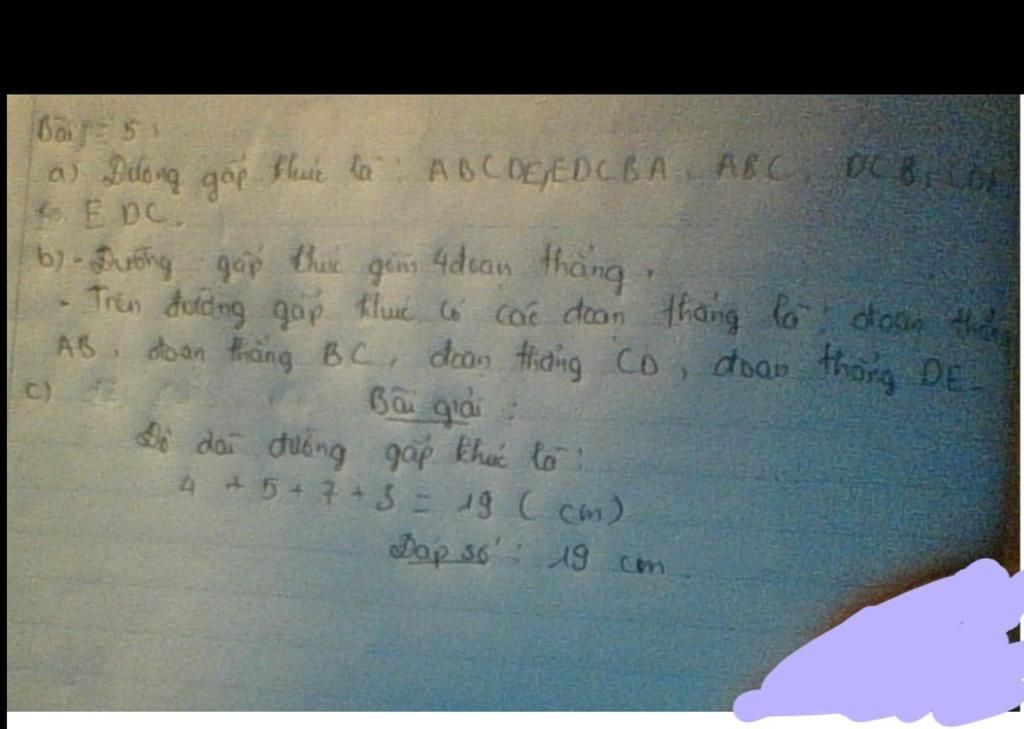 Bài : 5 :
a) Đường gấp khúc là : ABCDE, EDCBA, ABC, DCB, CDE
EDC.
b) - Đường gấp khúc gồm 4 đoạn thẳng.
- Trên đường gấp khúc có các đoạn thẳng là : đoạn thẳng
AB, đoạn thẳng BC, đoạn thẳng CD, đoạn thẳng DE.
c)
Bài giải :
Độ dài đường gấp khúc là :
4 + 5 + 7 + 3 = 19 ( cm )
Đáp số : 19 cm